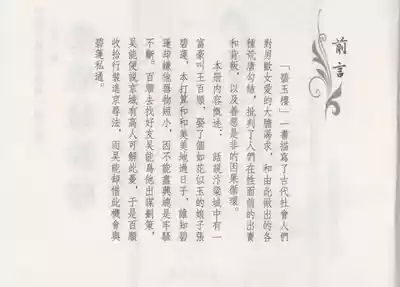 前言
「碧玉樓」一書描寫了古代社會人們
對男歡女愛的大膽渴求，和由此做出的各
種荒唐勾結，批判了人們在性面前的出賣
和背叛，以及善惡是非的因果循環。
本冊內容概述：話說汴梁城中有一
富豪叫王百順，娶了個如花似玉的娘子張
碧蓮，本打算和和美美地過日子，誰知碧
蓮却嫌他尋物短小，因不能盡興總是牢騷
不斷。百順去找好友吳能爲他出謀劃策，
吳能便說京城有高人可解此憂，于是百順
收拾行裝進京尋法，而吳能却借此機會與
碧蓮私通。